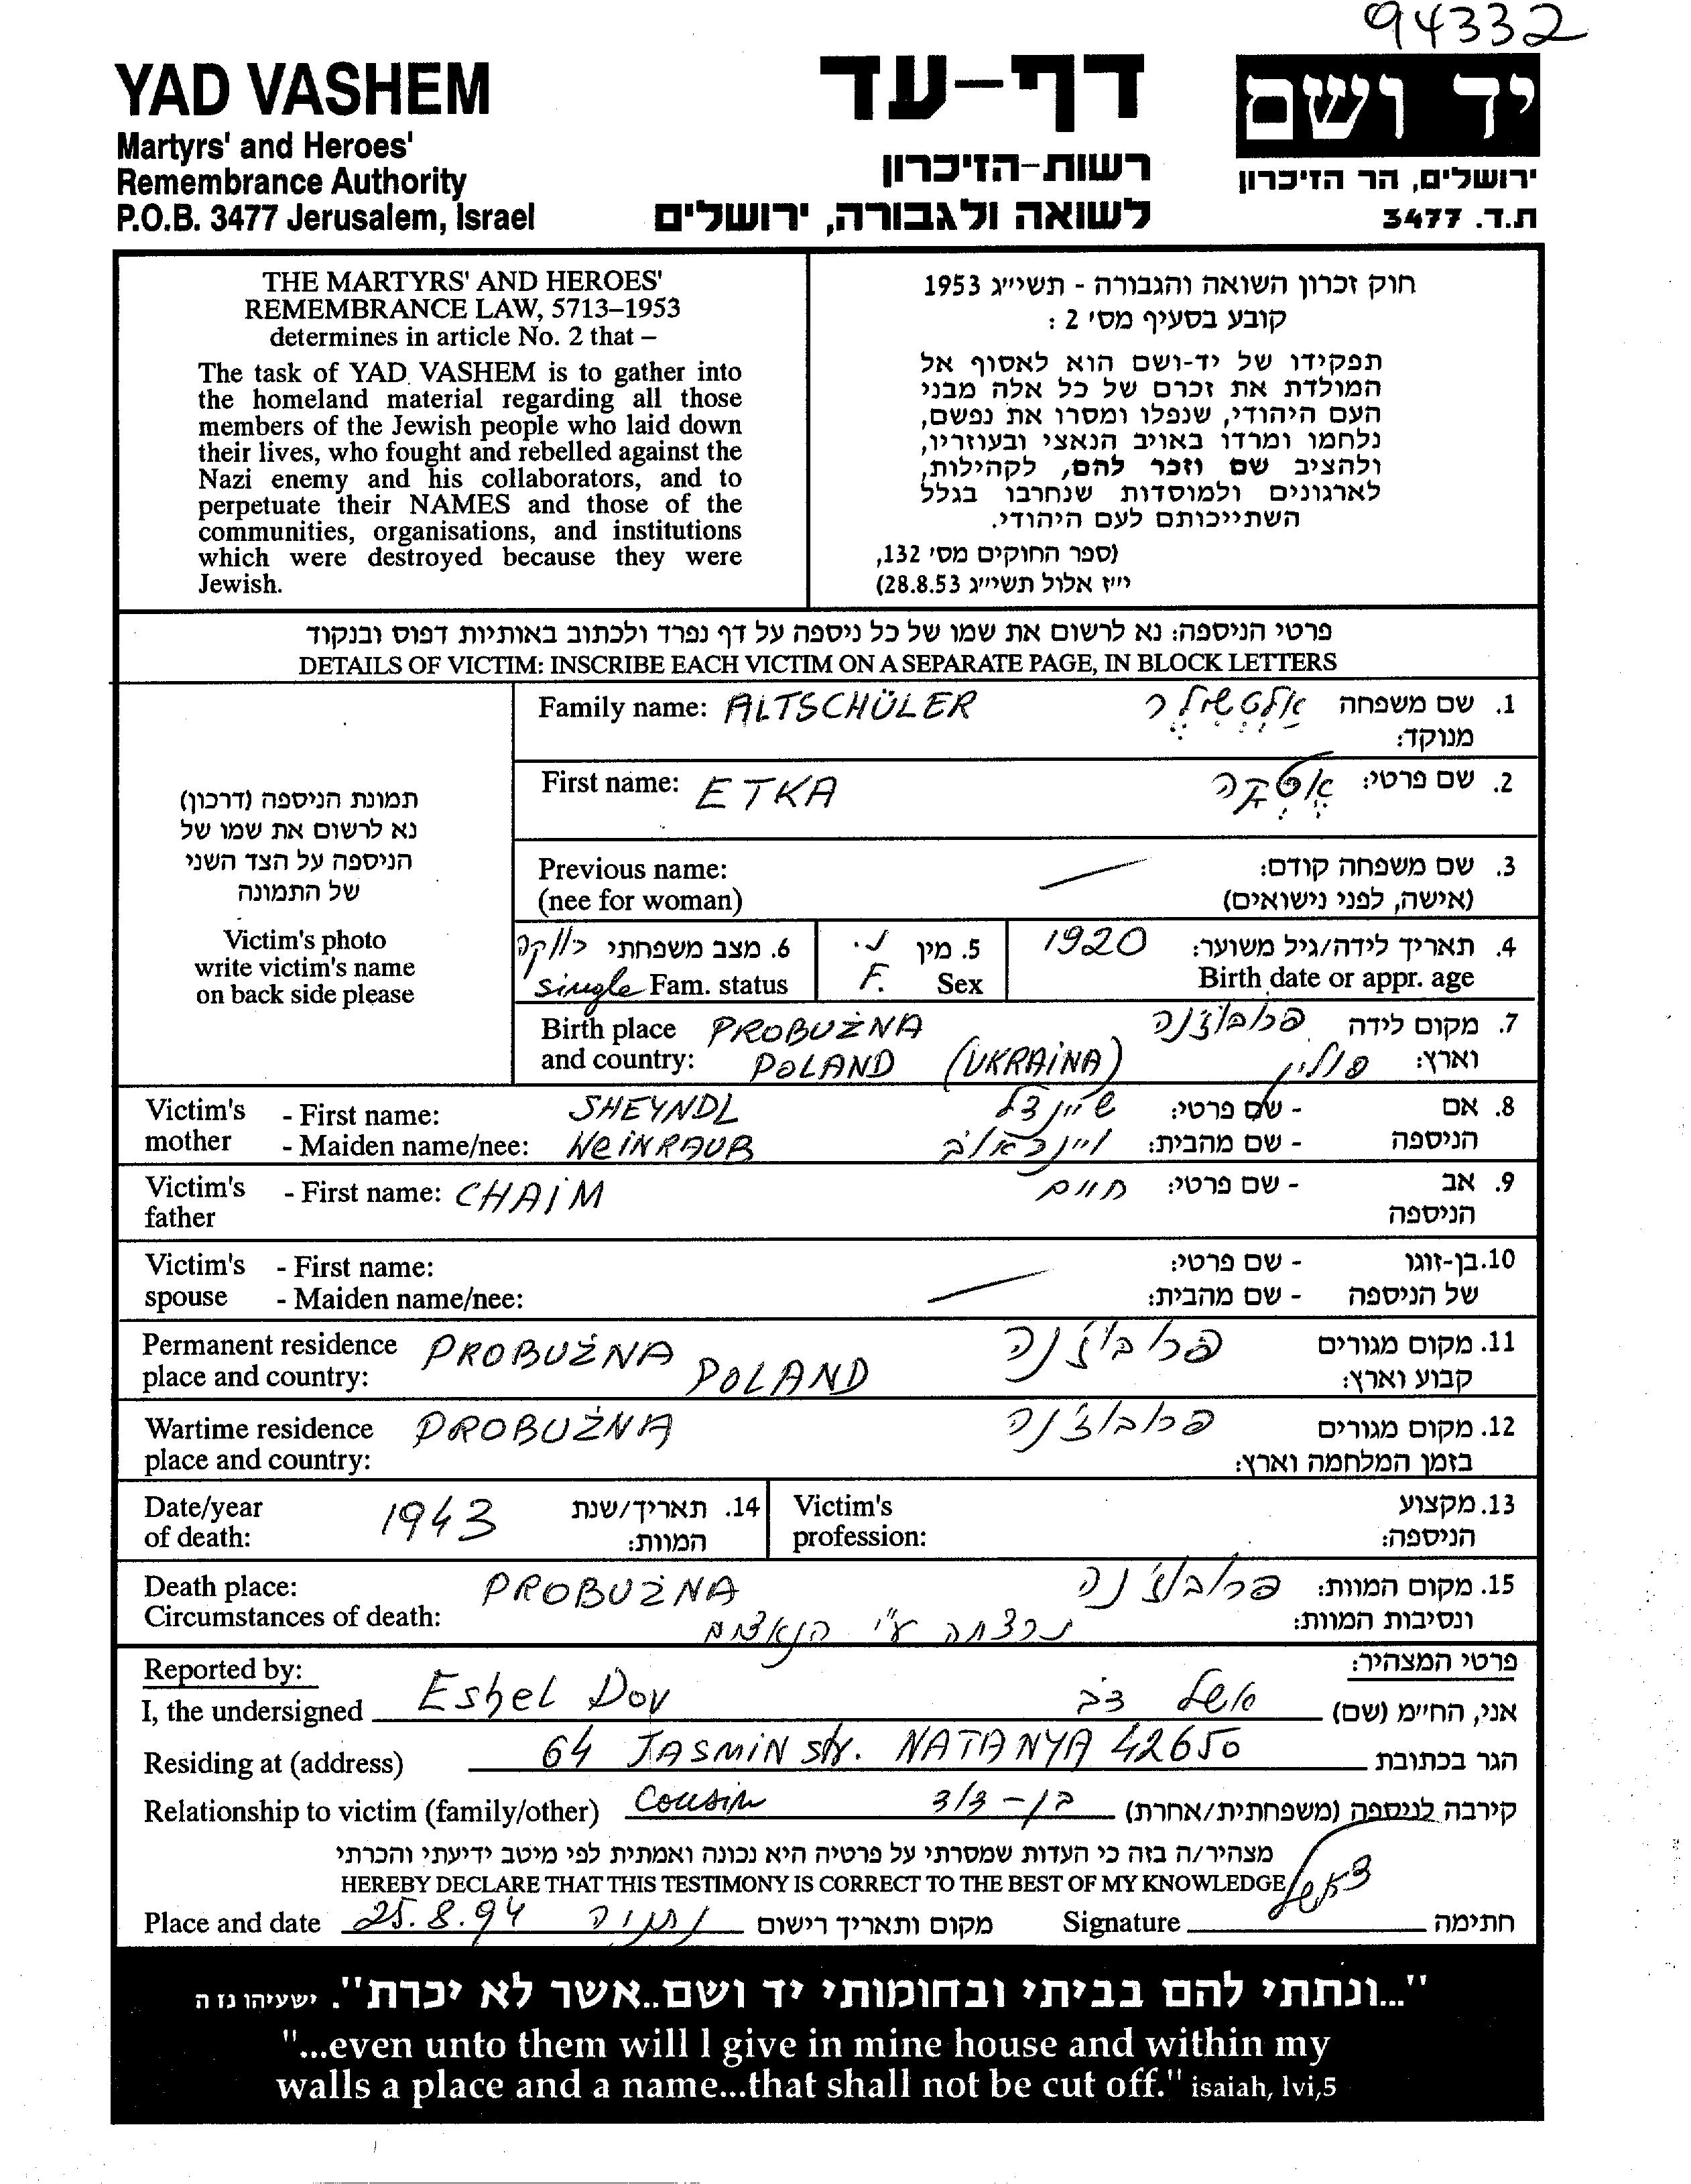 94332
YAD VASHEM
Martyrs' and Heroes'
Remembrance Authority
P.O.B. 3477 Jerusalem, Israel
דף-עד
רשות-הזיכרון
לשואה ולגבורה, ירושלים
יד ושם
ירושלים, הר הזיכרון
ת.ד. 3477
THE MARTYRS' AND HEROES'
REMEMBRANCE LAW, 5713–1953
determines in article No. 2 that –
The task of YAD VASHEM is to gather into
the homeland material regarding all those
members of the Jewish people who laid down
their lives, who fought and rebelled against the
Nazi enemy and his collaborators, and to
perpetuate their NAMES and those of the
communities, organisations, and institutions
which were destroyed because they were
Jewish.
חוק זכרון השואה והגבורה - תשי״ג 1953
קובע בסעיף מס׳ 2 :
תפקידו של יד-ושם הוא לאסוף אל
המולדת את זכרם של כל אלה מבני
העם היהודי, שנפלו ומסרו את נפשם,
נלחמו ומרדו באויב הנאצי ובעוזריו,
ולהציב שם וזכר להם, לקהילות,
לארגונים ולמוסדות שנחרבו בגלל
השתייכותם לעם היהודי.
(ספר החוקים מס׳ 132,
י״ז אלול תשי״ג 28.8.53)
פרטי הניספה: נא לרשום את שמו של כל ניספה על דף נפרד ולכתוב באותיות דפוס ובנקוד
DETAILS OF VICTIM: INSCRIBE EACH VICTIM ON A SEPARATE PAGE, IN BLOCK LETTERS
תמונת הניספה (דרכון)
נא לרשום את שמו של
הניספה על הצד השני
של התמונה
Victim's photo
write victim's name
on back side please
Family name: ALTSCHÜLER אלטשולר 1. שם משפחה
מנוקד:
First name: ETKA אטקה 2. שם פרטי:
Previous name: 3. שם משפחה קודם:
(nee for woman) (אישה, לפני נישואים)
6. מצב משפחתי רווקה 5. מין נ. 1920 4. תאריך לידה/גיל משוער:
single Fam. status F. Sex Birth date or appr. age
Birth place PROBUŻNA פרובוז'נה 7. מקום לידה
and country: POLAND (UKRAINA) פולין וארץ:
Victim's - First name: SHEYNDL שיינדל - שם פרטי: 8. אם
mother - Maiden name/nee: WEINRAUB ויינראוב - שם מהבית: הניספה
Victim's - First name: CHAIM חיים - שם פרטי: 9. אב
father הניספה
Victim's - First name: - שם פרטי: 10. בן-זוגו
spouse - Maiden name/nee: - שם מהבית: של הניספה
Permanent residence PROBUŻNA פרובוז'נה 11. מקום מגורים
place and country: POLAND קבוע וארץ:
Wartime residence PROBUŻNA פרובוז'נה 12. מקום מגורים
place and country: בזמן המלחמה וארץ:
Date/year 1943 14. תאריך/שנת Victim's 13. מקצוע
of death: המוות: profession: הניספה:
Death place: PROBUŻNA פרובוז'נה 15. מקום המוות:
Circumstances of death: נרצחה ע"י הנאצים ונסיבות המוות:
Reported by: פרטי המצהיר:
I, the undersigned Eshel Dov אשל דב אני, החי״מ (שם)
Residing at (address) 64 JASMIN str. NATANYA 42650 הגר בכתובת
Relationship to victim (family/other) Cousin בן-דוד קירבה לניספה (משפחתית/אחרת)
מצהיר/ה בזה כי העדות שמסרתי על פרטיה היא נכונה ואמתית לפי מיטב ידיעתי והכרתי
HEREBY DECLARE THAT THIS TESTIMONY IS CORRECT TO THE BEST OF MY KNOWLEDGE
Place and date 25.8.94 נתניה מקום ותאריך רישום Signature ד. אשל חתימה
"...ונתתי להם בביתי ובחומותי יד ושם..אשר לא יכרת". ישעיהו נז ה
"...even unto them will I give in mine house and within my
walls a place and a name...that shall not be cut off." isaiah, lvi,5